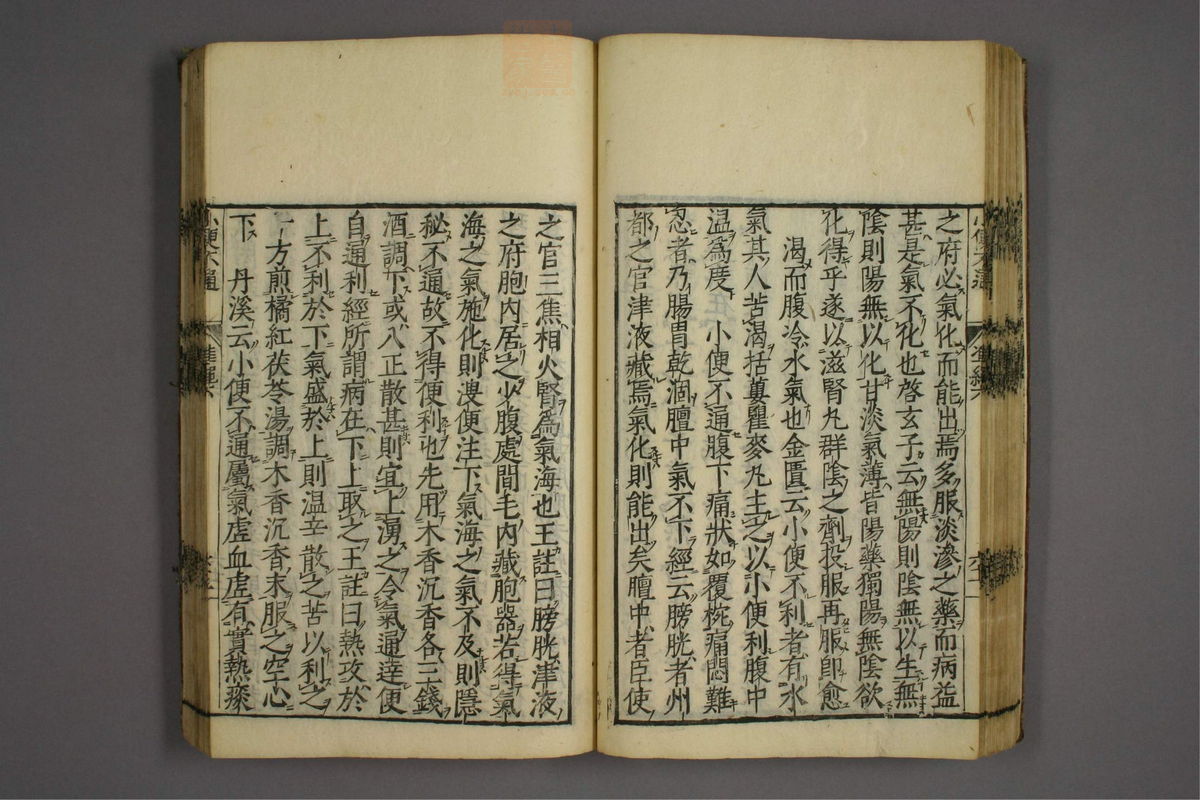 之府必氣化而能出焉多服淡滲之藥而病益
甚是氣不化也啓玄子云無陽則陰無以生無
陰則陽無以化甘淡氣薄皆陽藥獨陽無陰欲
化得乎遂以滋腎丸群陰之劑投服再服卽愈
渴而腹冷水氣也金匱云小便不利者有水
氣其人苦渴括蔞瞿麥丸主之以小便利腹中
温爲度 小便不通腹下痛狀如覆椀痛悶難
忍者乃腸胃乾涸膻中氣不下經云膀胱者州
都之官津液藏焉氣化則能出矣膻中者臣使
之官三焦相火腎爲氣海也王註曰膀胱津液
之府胞內居之少腹處間毛內藏胞器若得氣
海之氣施化則溲便注下氣海之氣不及則隱
秘不通故不得便利也先用木香沉香各三錢
酒調下或八正散甚則宜上湧之令氣通達便
自通利經所謂病在下上取之王註曰熱攻於
上不利於下氣盛於上則温辛散之苦以利之
一方煎橘紅茯苓湯調木香沉香末服之空心
下 丹溪云小便不通屬氣虛血虛有實熱痰
小便不通
準繩六